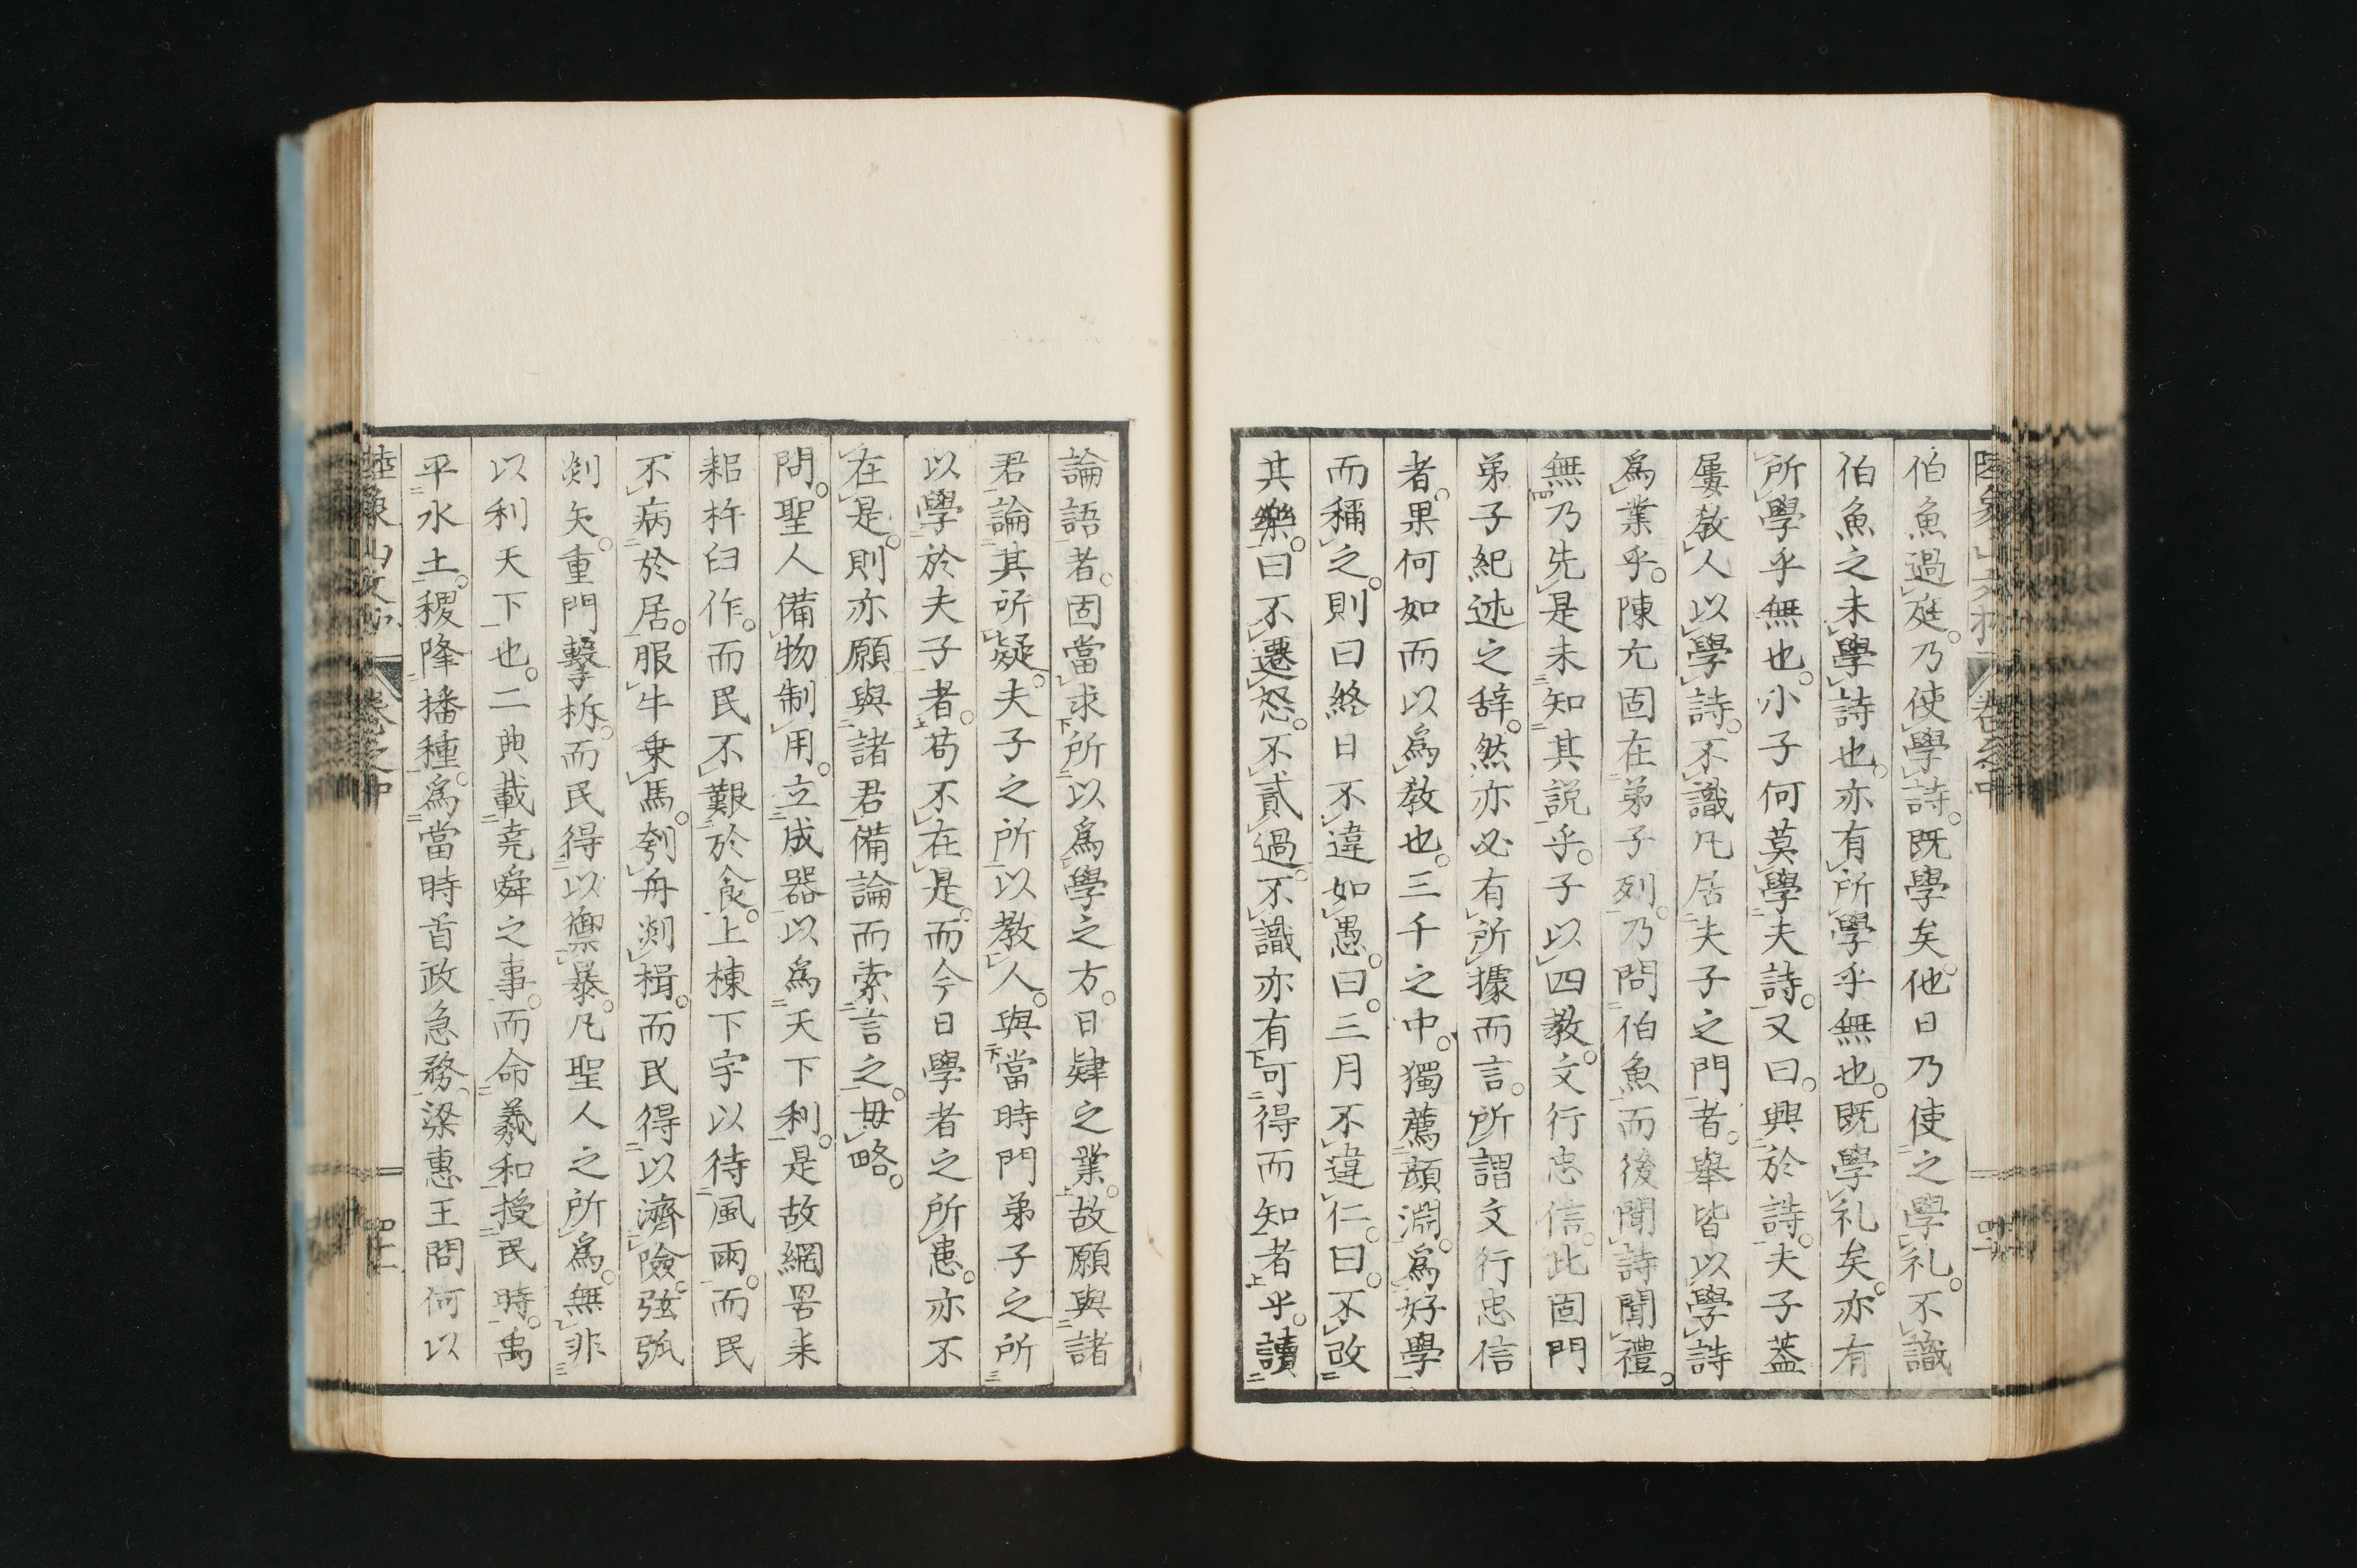 伯魚過庭。乃使學詩。既學矣。他日乃使之學礼。不識
伯魚之未學詩也。亦有所學乎無也。既學礼矣。亦有
所學乎無也。小子何莫學夫詩。又曰。興於詩。夫子蓋
屢教人以學詩。不識凡居夫子之門者。舉皆以學詩
爲業乎。陳亢固在弟子列。乃問伯魚而後聞詩聞禮。
無乃先是未知其説乎。子以四教。文行忠信。此固門
弟子紀述之辞。然亦必有所據而言。所謂文行忠信
者。果何如而以爲教也。三千之中。獨薦顔淵。爲好學
而稱之。則曰終日不違如愚。曰。三月不違仁。曰。不改
其樂。曰不遷怒。不貳過。不識亦有可得而知者乎。讀
論語者。固當求所以爲學之方。日肄之業。故願與諸
君論其所疑。夫子之所以教人。與當時門弟子之所
以學於夫子者。苟不在是。而今日學者之所患。亦不
在是。則亦願與諸君備論而索言之。毋略。
問。聖人備物制用。立成器以爲天下利。是故網罟耒
耜杵臼作。而民不艱於食。上棟下宇以待風雨。而民
不病於居。服牛乗馬。刳舟剡楫。而民得以濟險。弦弧
剡矢。重門擊柝。而民得以禦暴。凡聖人之所爲。無非
以利天下也。二典載堯舜之事。而命羲和授民時。禹
平水土。稷降播種。爲當時首政急務。梁惠王問何以
陸象山文抄 卷之中